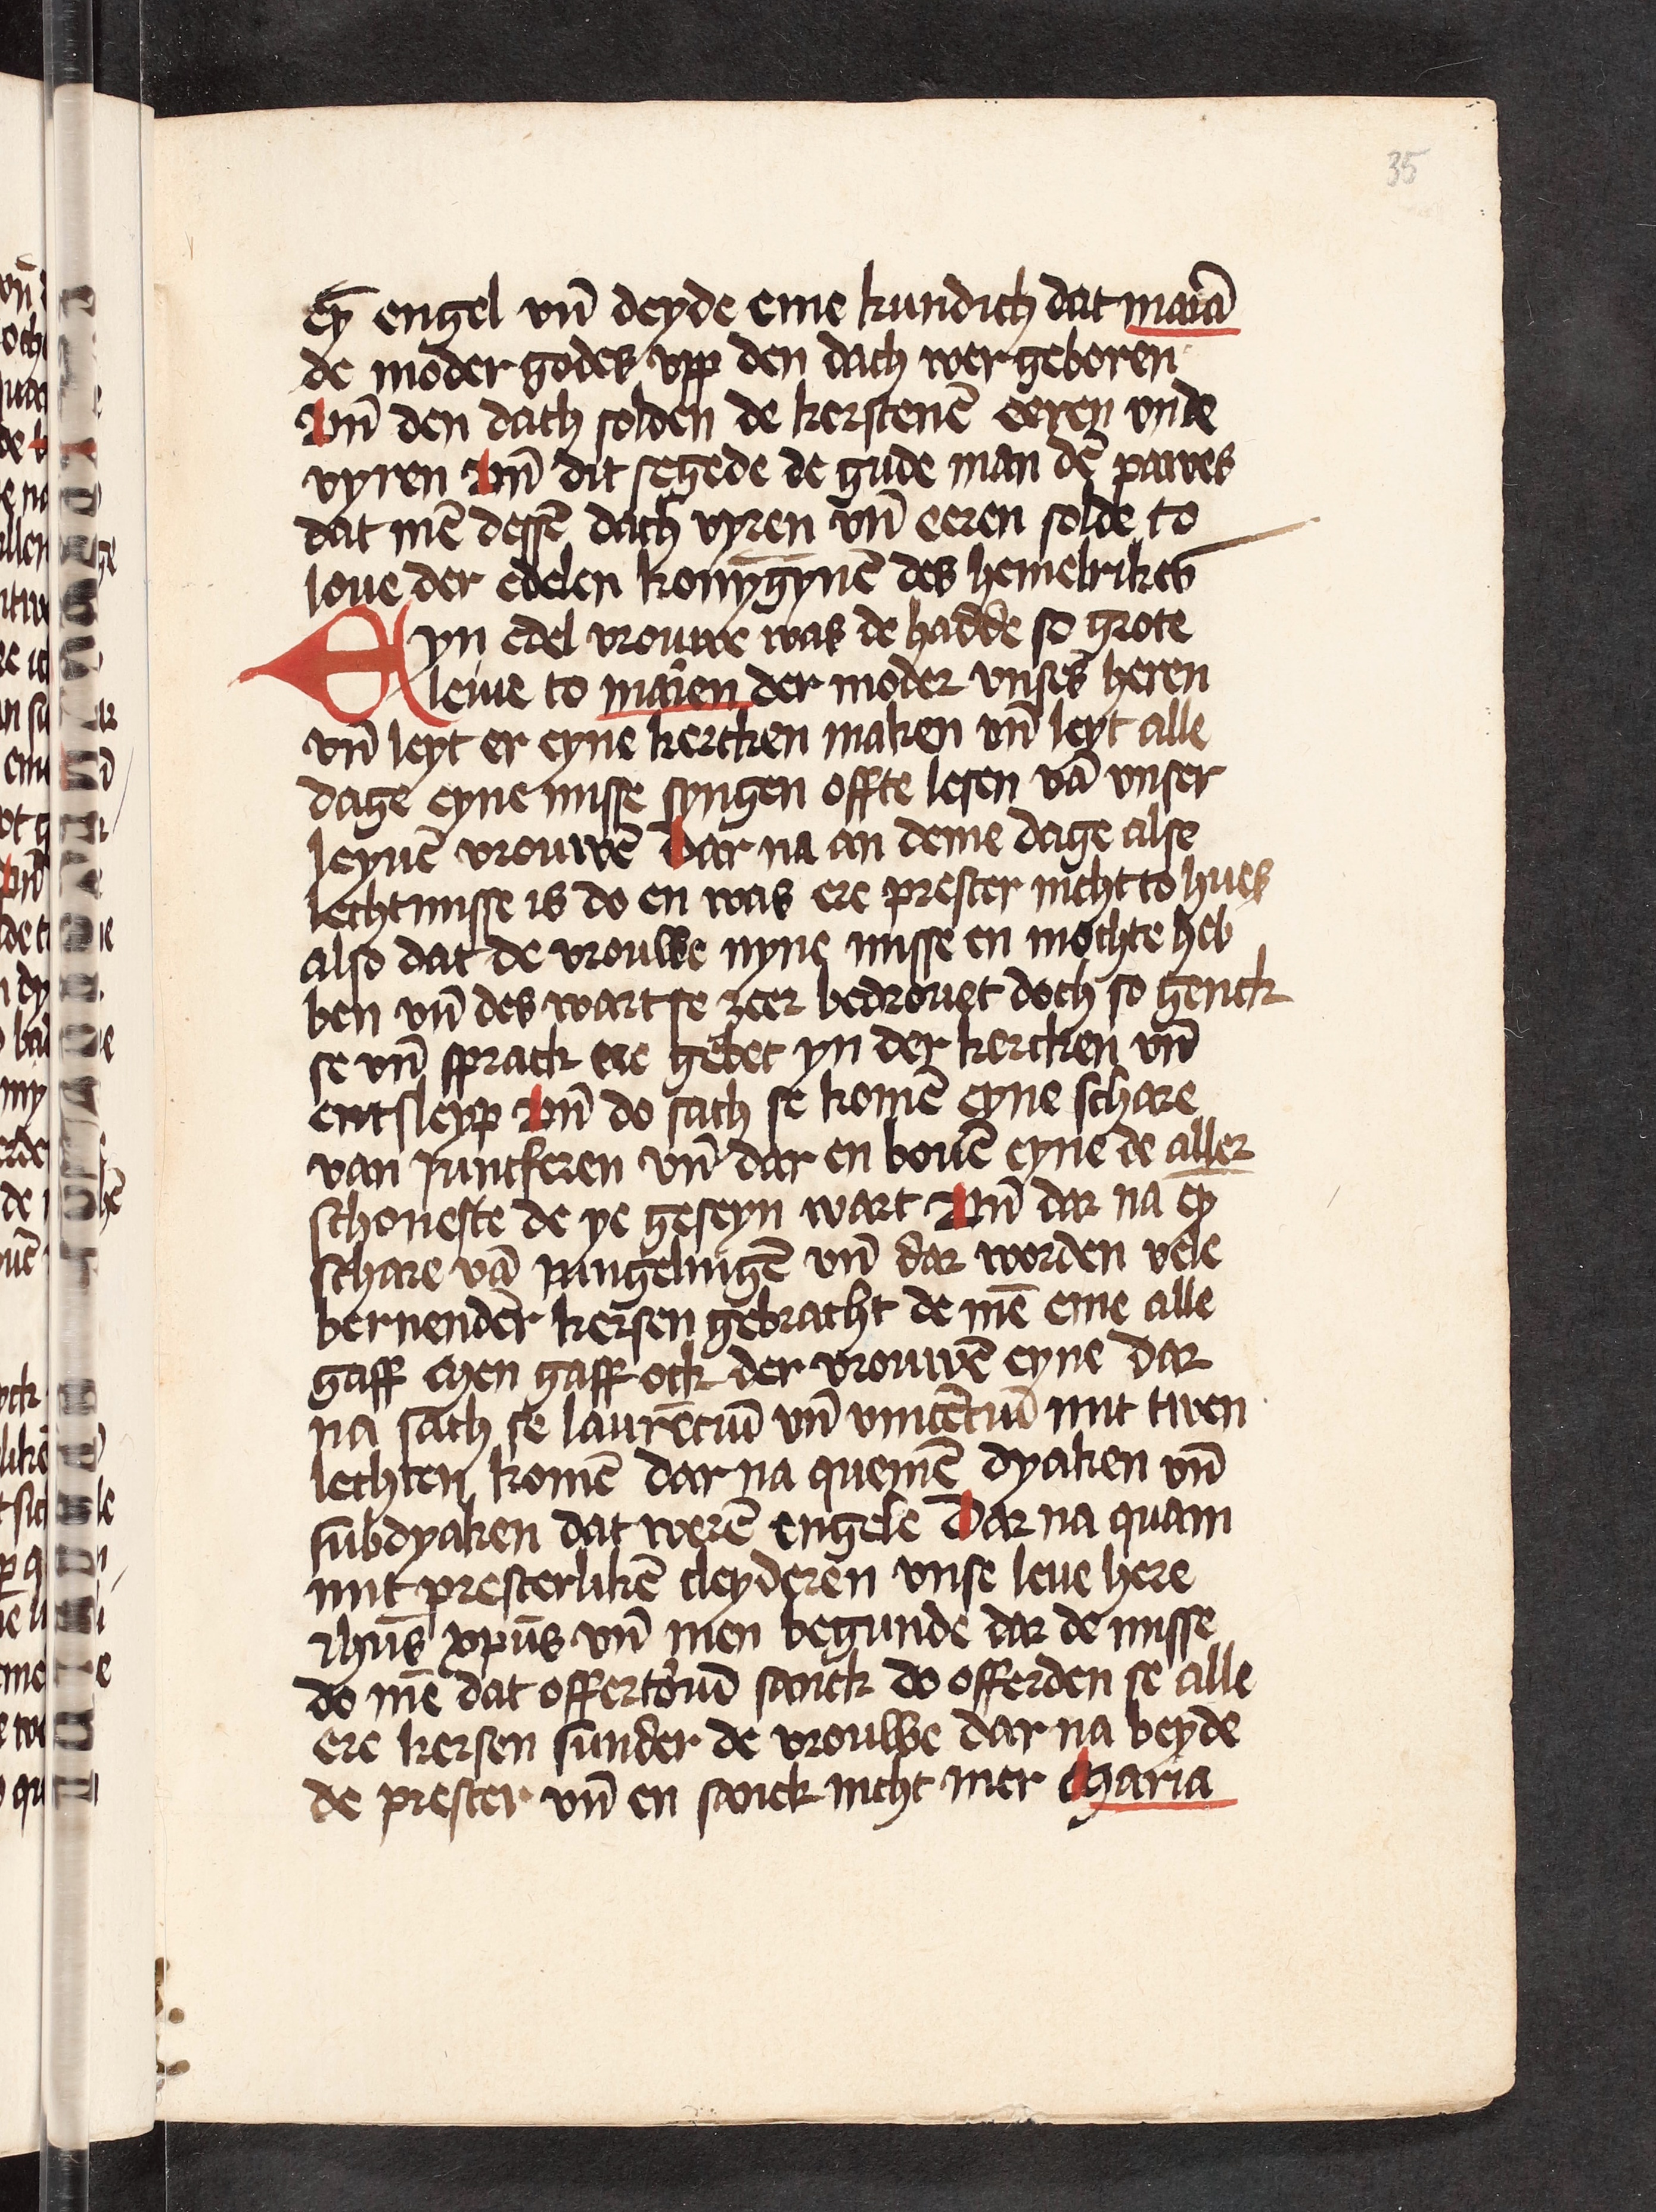 35
ey̅ engel vn̅ deyde eme kundich dat maria̅
de moder godes vpp den dach wer geboren
Vn̅ den dach solden de kerstene̅ eeren vnde
vyren Vn̅ dit segede de gude man de̅ pawes
dat me̅ desse̅ dach vyren vn̅ eeren solde to
loue der edelen konyngyne̅ des hemelrikes
Eyn edel vrouwe was de hadde so grote
leiue to marien der moder vnses heren
vn̅ leyt er eyne kercken maken vn̅ leyt alle
dage eyne misse syngen offte lesen va̅ vnser
leyue̅ vrouwe̅ Dar na an deme dage alse
lechtmisse is do en was ere prester nicht to hues
also dat de vrouwe nyne misse en mochte heb
ben vn̅ des wart se zeer bedrouet doch so genck
se vn̅ sprack ere gebet yn der kercken vn̅
entsleyp Vn̅ do sach se kome̅ eyne schare
van juncferen vn̅ dar en boue̅ eyne de aller
schoneste de ye geseyn wart Vn̅ dar na ey̅
schare va̅ jungelinge̅ vn̅ dar worden vele
bernender kersen gebracht de me̅ eme alle
gaff Men gaff ock der vrouwe̅ eyne dar
na sach se laure̅ciu̅ vn̅ vince̅ciu̅ mit twen
lechten kome̅ dar na queme̅ dyaken vn̅
subdyaken dat were̅ engele Dar na quam
mit presterlike̅ cleyderen vnse leue here
Jhu̅s xpu̅s vn̅ men begunde dar de misse
do me̅ dat offertoriu̅ sanck do offerden se alle
ere kersen sunder de vrouwe dar na beyde
de prester vn̅ en sanck nicht mer Maria